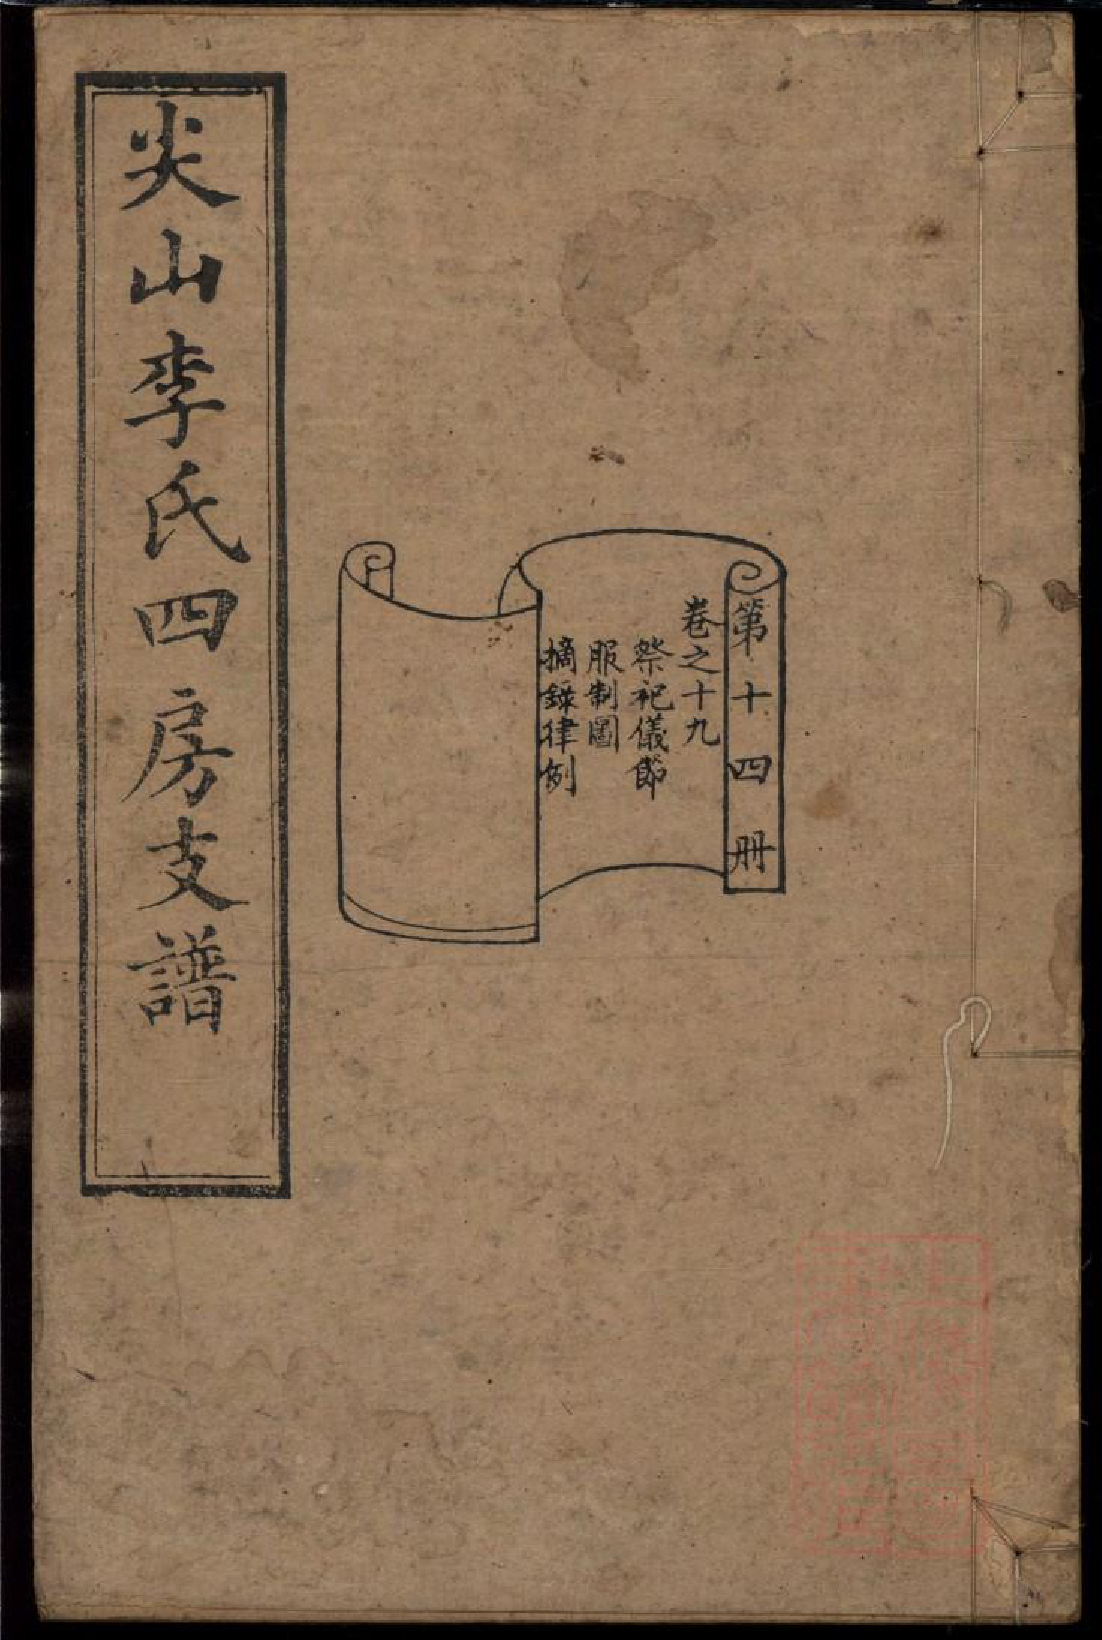 尖山李氏四房支譜
第十四册
卷之十九
祭祀儀節
服制圖
摘錄律例